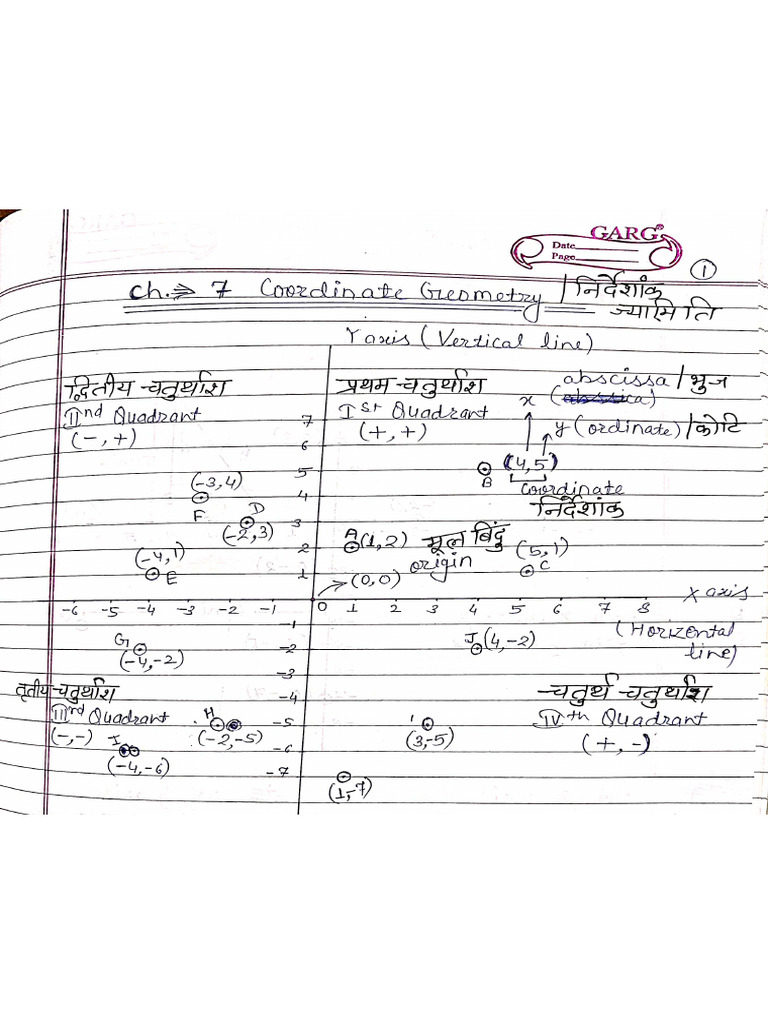 GARG®
Date
Page
1
Ch. ⇒ 7 Coordinate Geometry / निर्देशांक
ज्यामिति
Y axis (Vertical line)
द्वितीय चतुर्थांश
IInd Quadrant
(-, +)
प्रथम चतुर्थांश
Ist Quadrant
(+, +)
abscissa / भुज
x
y (ordinate) / कोटि
7
6
5
4
3
2
1
(-3, 4)
F
D
(-2, 3)
(-4, 1)
E
B
(4, 5)
Coordinate
निर्देशांक
A (1, 2)
मूल बिंदु
origin
(0, 0)
(5, 1)
C
-6 -5 -4 -3 -2 -1 0 1 2 3 4 5 6 7 8
X axis
(Horizental
line)
-1
-2
-3
-4
-5
-6
-7
G
(-4, -2)
J (4, -2)
तृतीय चतुर्थांश
IIIrd Quadrant
(-, -)
H
(-2, -5)
I
(-4, -6)
(3, -5)
चतुर्थ चतुर्थांश
IVth Quadrant
(+, -)
(1, -7)